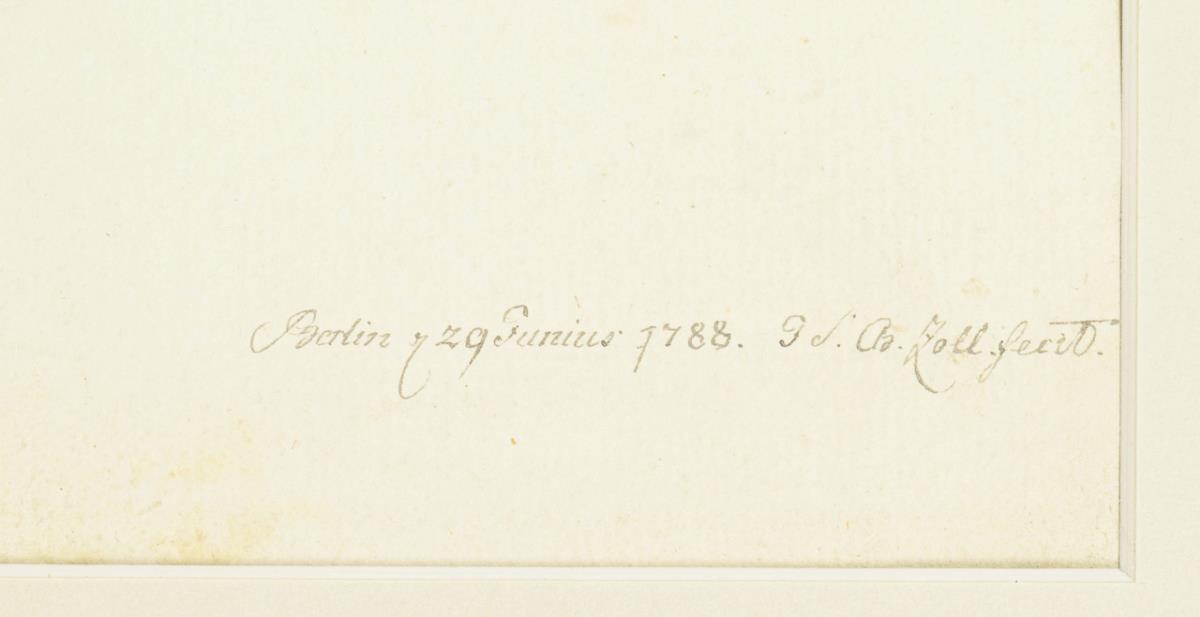 Berlin y 29 Junius 1788. J S. Ch. Zoll fecit.